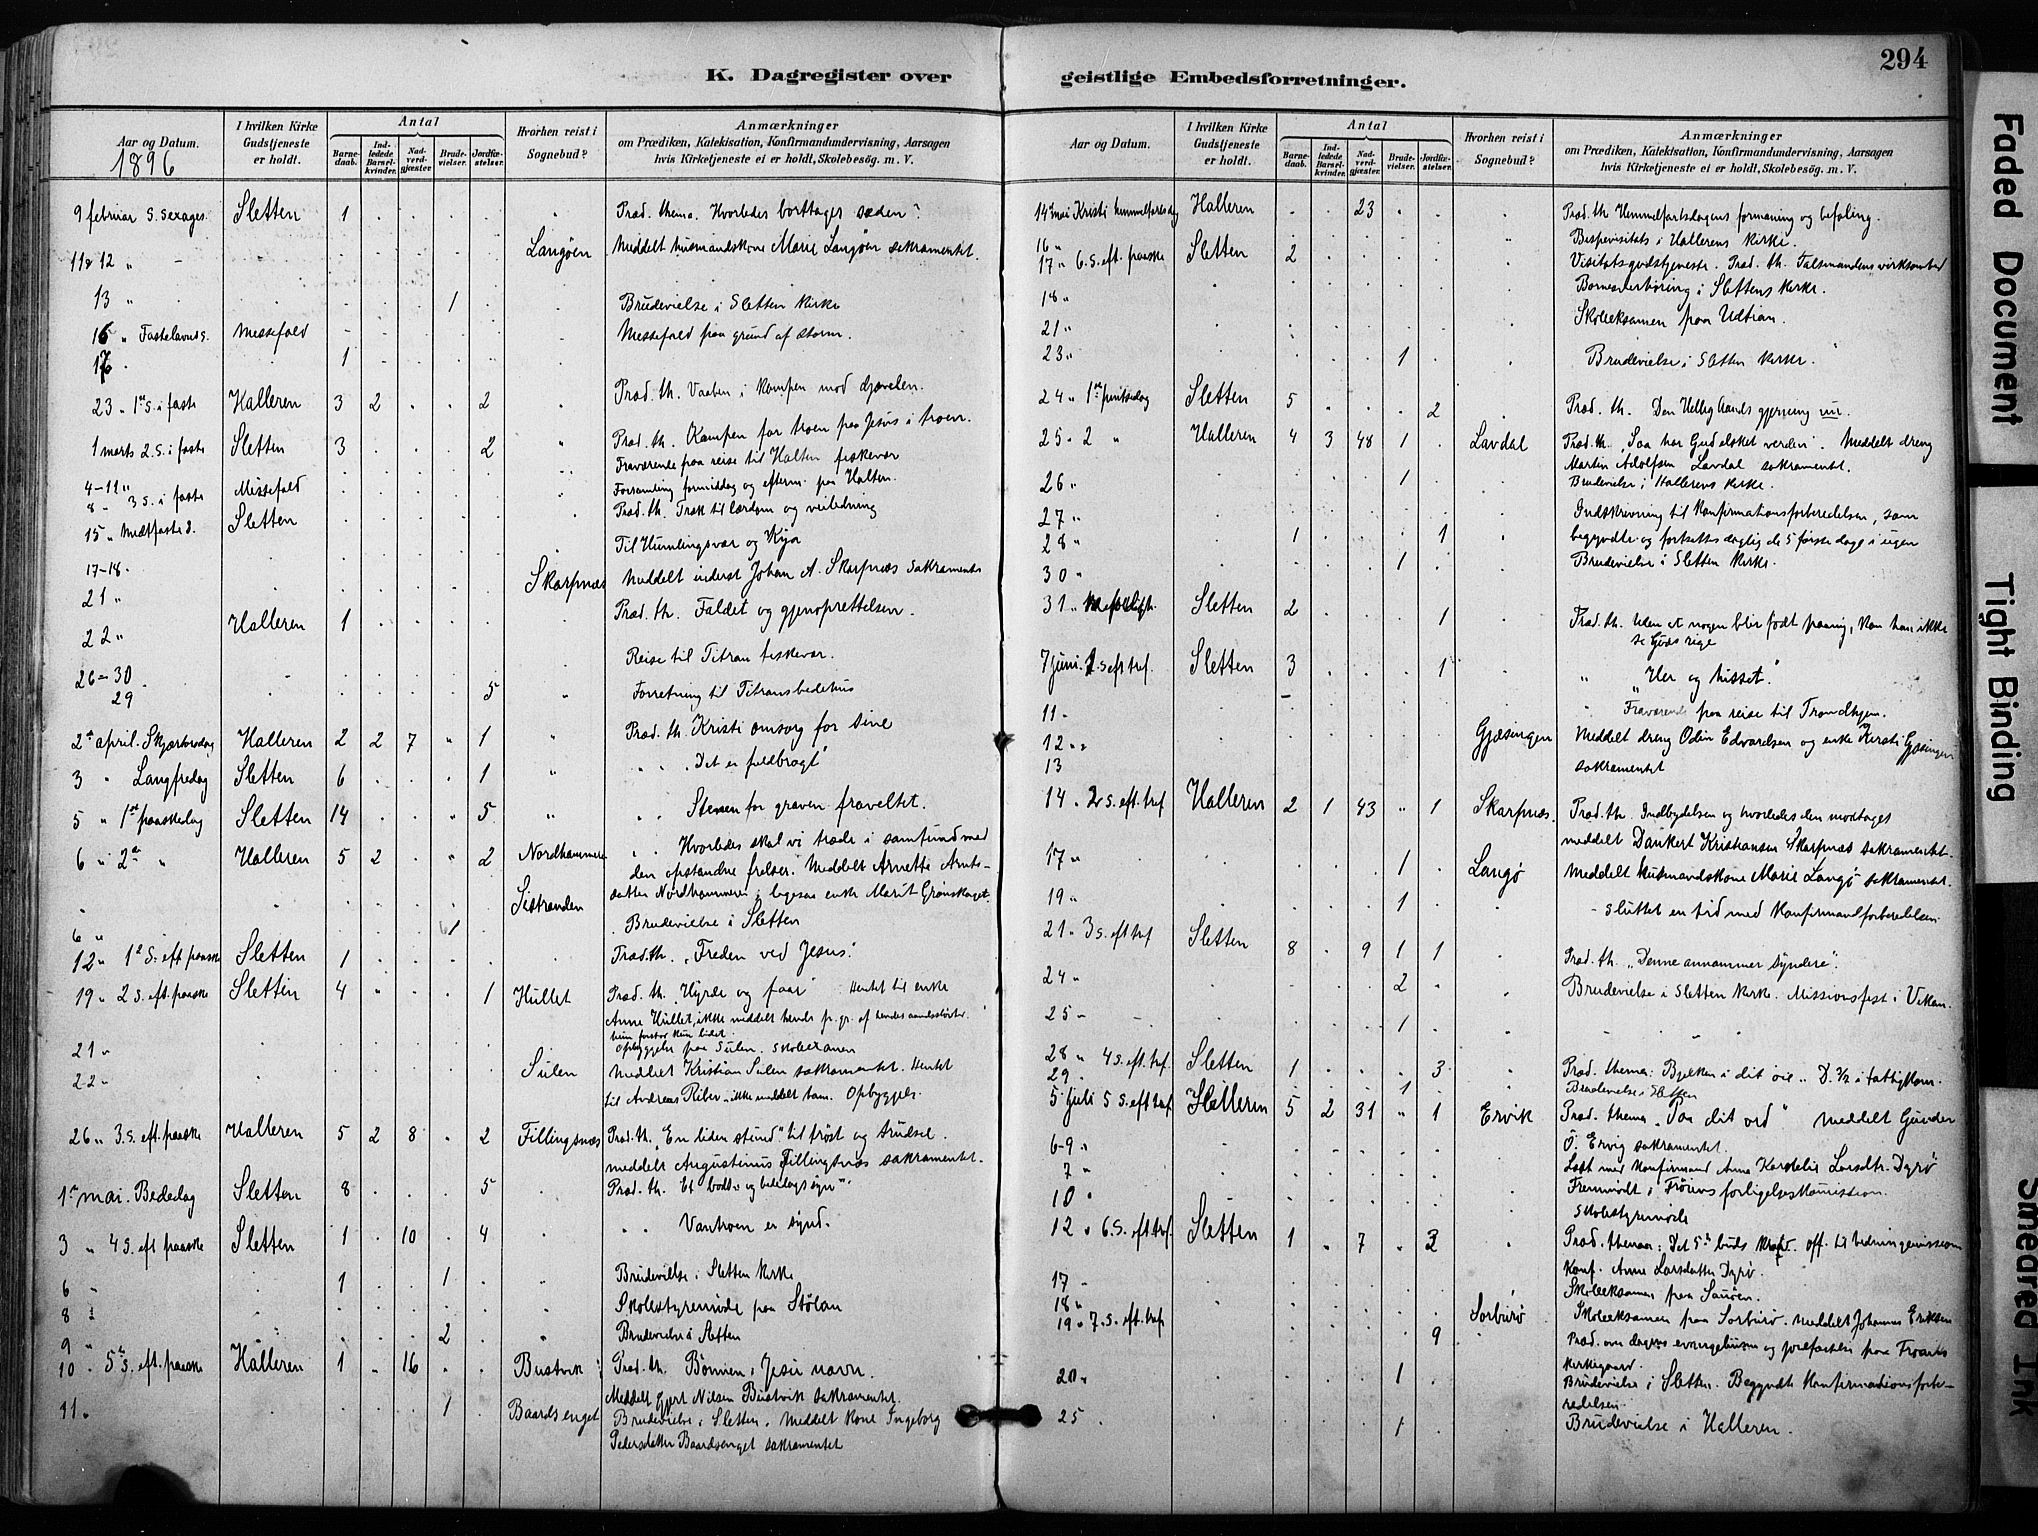 294
K. Dagregister over geistlige Embedsforretninger.
Aar og Datum.
1896
I hvilken Kirke Gudstjeneste er holdt.
Antal
Barne-daab.
Ind-ledede Barsel-kvinder.
Nad-verd-gjæster.
Brude-vielser.
Jordfæ-stelser.
Hvorhen reist i Sognebud?
Anmærkninger
om Prædiken, Katekisation, Konfirmandundervisning, Aarsagen
hvis Kirketjeneste ei er holdt, Skolebesøg. m. V.
9 februar S. sexages. Sletten 1 Præd. thema. Hvorledes borttages sæden?
11 & 12 " Langøen Meddelt husmandskone Marie Langøen sakramentet.
13 " 1 Brudevielse i Sletten Kirke
16 " Fastelavns S. Messefald Messefald paa grund af storm.
17 1
23 " 1ste S. i faste Halleren 3 2 2 Præd. th. Vaaben i Kampen mod djævelen.
1 marts 2. S. i faste Sletten 3 2 Præd. th. Kampen for troen paa Jesus i troen.
4-11 " Fraværende paa reise til Halten fiskevær
8 " 3 S. i faste Messefald Forsamling formiddag og efterm. paa Halten.
15 " Midtfaste S. Sletten Præd. th. Træk til lærdom og veiledning
17-18. Til Humlingsvær og Kya
21 " Skarpnæs Meddelt inderst Johan A. Skarpnæs sakramentet
22 " Halleren 1 Præd. th. Faldet og gjenoprettelsen.
26-30 Reise til Titran fiskevær.
29 5 Forretning til Titrans bedehus
2den april. Skjærtorsdag Halleren 2 2 7 " 1 Præd. th. Kristi omsorg for sine
3 " Langfredag Sletten 6 1 " " Det er fuldbragt"
5 " 1ste paaskedag Sletten 14 " 5 " " Stenen for graven fravæltet.
6 " 2den " Halleren 5 2 " 2 Nordhammeren " " Hvorledes skal vi træde i samfund med
den opstandne frelser. Meddelt Arnette Arnts-
" Sistranden datter Nordhammeren; ligesaa enke Marit Grønskaget.
6 " 1 Brudevielse i Sletten
12 " 1ste S. eft. paaske Sletten 1 Præd. th. "Freden ved Jesus."
19 " 2 S. eft. paaske Sletten 4 " 1 Hullet Præd. th. "Hyrde og faar" Hentet til enke
Anne Hullet, ikke meddelt hende p. gr. af hendes aandssløvhet.
hun forstod kun lidet.
21 " Opbyggelse paa Sulen. Skoleexamen
22 " Sulen Meddelt Kristian Sulen sakramentet. Hentet
til Andreas Riber - ikke meddelt ham. Opbyggels.
26 " 3. S. eft. paaske Halleren 5 2 8 " 2 Fillingsnæs Præd. th. "En liden stund" til trøst og trudsel.
meddelt Augustinus Fillingsnæs sakramentet.
1ste mai. Bededag Sletten 8 5 Præd. th. Et bods- og bededagssyn"
3 " 4 S. eft paaske Sletten 1 10 4 " " Vantroen er synd.
6 " 1 1 Brudevielse i Sletten Kirke
8 " Skolestyremøde paa Stølan
9 " 2 Brudevielse i Sletten
10 " 5te S. eft. paaske Halleren 1 " 16 Bustvik Præd. th. Bønnen i Jesu navn.
Meddelt Gjert Nilsen Bustvik sakramentet.
11 " 1 Baardsenget Brudevielse i Sletten. Meddelt kone Ingeborg
Pedersdatter Baardsenget sakramentet
Aar og Datum.
I hvilken Kirke Gudstjeneste er holdt.
Antal
Barne-daab.
Ind-ledede Barsel-kvinder.
Nad-verd-gjester.
Brude-vielser.
Jordfæ-stelser.
Hvorhen reist i Sognebud?
Anmærkninger
om Prædiken, Katekisation, Konfirmandundervisning, Aarsagen
hvis Kirketjeneste ei er holdt, Skolebesøg. m. V.
14de mai Kristi himmelfartsdag Halleren 23 Præd. th Himmelfartsdagens formaning og befaling.
16 " Bispevisitats i Hallerens Kirke.
17 " 6. S. eft. paaske Sletten 2 Visitatsgudstjeneste. Præd. th. Talsmandens virksomhed
18 " Børneoverhøring i Slettens Kirke.
21 " Skoleeksamen paa Udtian.
23 " 1 Brudevielse i Sletten Kirke.
24 " 1ste pintsedag Sletten 5 2 Præd. th. Den Hellig Aands gjerning
25 " 2 " Halleren 4 3 48 1 Lavdal Præd. th. Saa har Gud elsket verden. Meddelt dreng
Martin Adolfsen Lavdal sakramentet.
26 " 1 Brudevielse i Hallerens Kirke.
27 " Indskrivning til Konfirmationsforberedelsen, som
28 " 1 1 begyndte og fortsættes daglig de 5 første dage i ugen
30 " 1 Brudevielse i Sletten Kirke.
31 " Sletten 2 1 Præd. th. Uden at nogen blir født paany, kan han ikke
se Guds rige
7 juni. 1 S eft tref. Sletten 3 1 " Her og hisset."
11 " " Fraværende paa reise til Trondhjem.
12 " Gjæsingen Meddelt dreng Odin Edvardsen og enke Kirsti Gjæsingen
13 sakramentet
14 " 2 S. eft. tref Halleren 2 1 43 " 1 Skarpnæs. Præd. th. Indbydelsen og hvorledes den modtages
meddelt Dankert Kristiansen Skarpnæs sakramentet.
17 " 1 Langø Meddelt Husmandskone Marie Langø sakramentet.
19 " 1 - sluttet en tid med Konfirmandforberedelsen.
21 " 3 S. eft tref Sletten 8 9 1 1 Præd. th. "Denne annammer syndere".
24 " 2 Brudevielse i Sletten Kirke. Missionsfest i Vikan.
25 " 1
28 " 4 S. eft. tref. Sletten 1 3 Præd. thema: Bjelken i dit øie
29 " 1 Brudevielse i Sletten
5 juli 5 S. eft tref. Halleren 5 2 31 " 1 Ervik Præd. thema "Paa dit ord" meddelt Gunder
6-9 " O. Ervig sakramentet.
7 " Læst med Konfirmand Anne Kornelie Larsdtr. Dyrø
10 " Fremmødt i Frøiens forligelseskommission.
Skolestyremøde
12 " 6 S. eft. tref. Sletten 1 " 7 " 3 Præd. thema: Det 5te buds off. til hedningemissionen
Konf. Anne Larsdatter Dyrø.
17 " Skoleeksamen paa Sauøen.
18 " Sorburø Skoleeksamen paa Sorburø. Meddelt Johannes Eriksen
19 " 7. S. eft. tref 9 Præd. over dagens evangelium og jordfæstelse paa Froans
Kirkegaard.
20 " 1 Brudevielse i Sletten. Begyndte Konfirmationsforbe-
redelsen.
25 " 1 Brudevielse i Halleren.
Faded Document
Tight Binding
Smeared Ink